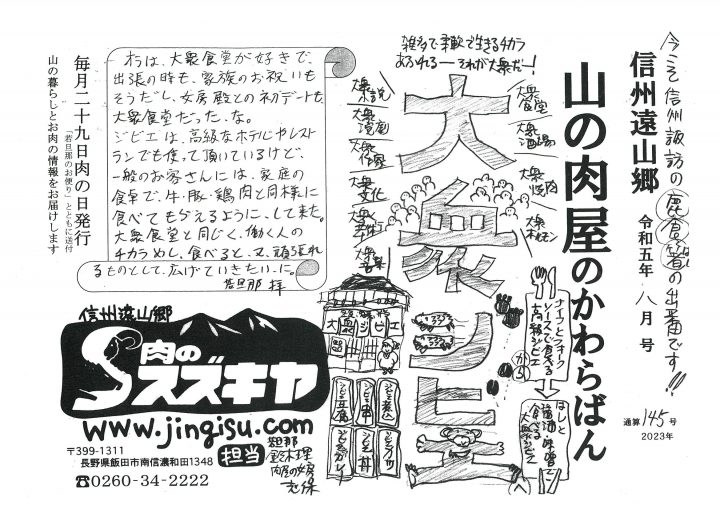 今こそ信州諏訪の鹿食箸の出番です!!
信州遠山郷
令和五年 八月 号
通算 145 号
2023年
山の肉屋のかわらばん
雑多で柔軟で生きるチカラ
あふれる――それが大衆だー!
大衆ジビエ
大衆食堂
大衆酒場
大衆焼肉
大衆ホルモン
大衆小説
大衆演劇
大衆作家
大衆文化
大衆音楽
ナイフとフォーク
ソースで食べる
高級ジビエ
から
はしと
醤油・味噌で
食べる
大衆ジビエ
へ
大衆ジビエ
ジビエ煮込
ジビエ串
ジビエカツ
ジビエ豆腐
ジビエ丼
ジビエカレー
オラは、大衆食堂が好きで、
出張の時も、家族のお祝いも
そうだし、女房殿との初デートも
大衆食堂だった、な。
ジビエは、高級なホテルやレスト
ランでも使って頂いているけど、
一般のお客さんには、家庭の
食卓で、牛・豚・鶏肉と同様に
食べてもらえるように、して来た。
大衆食堂と同じく、働く人の
チカラめし、食べると、又、頑張れ
るものとして、広げていきたい、に。
若旦那 拝
毎月二十九日肉の日発行
「若旦那のお便り」とともに送付
山の暮らしとお肉の情報をお届けします
信州遠山郷
肉の
スズキヤ
www.jingisu.com
〒399-1311
長野県飯田市南信濃和田1348
☎0260-34-2222
担当
若旦那
鈴木理
肉屋の女房
志保